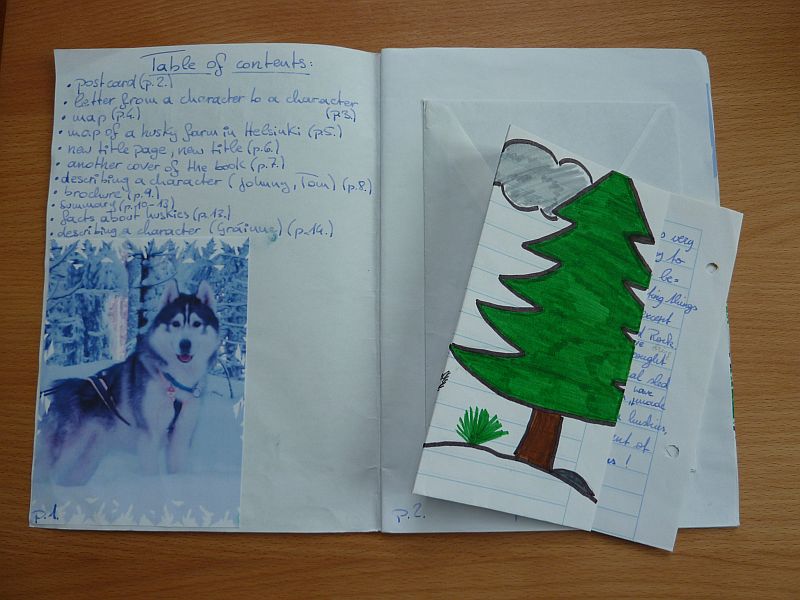 Table of contents:
• postcard (p.2.)
• letter from a character to a character
(p.3.)
• map (p.4.)
• map of a husky farm in Helsinki (p.5.)
• new title page, new title (p.6.)
• another cover of the book (p.7.)
• describing a character (Johnny, Tom) (p.8.)
• brochure (p.9.)
• summary (p.10-13.)
• facts about huskies (p.13.)
• describing a character (Gráinne) (p.14.)
p.1.
p.2.
very
to
be-
ting things
Rock
ought
sled
have
made
huskies,
of
!